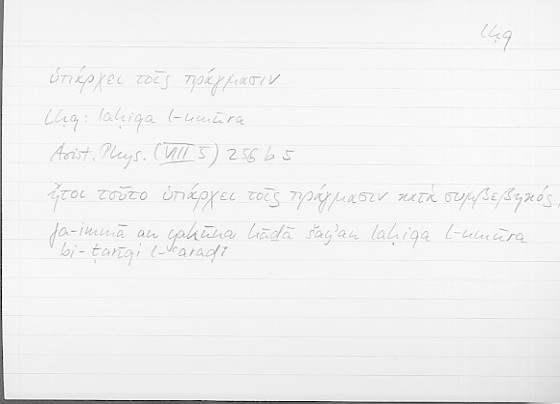 lḥq
ὑπάρχει τοῖς πράγμασιν
lḥq: laḥiqa l-umūra
Arist. Phys. (VIII 5) 256 b 5
ἤτοι τοῦτο ὑπάρχει τοῖς πράγμασιν κατὰ συμβεβηκός,
fa-immā an yakūna hāḏā šayʾan laḥiqa l-umūra
bi-ṭarīqi l-ʿaraḍi